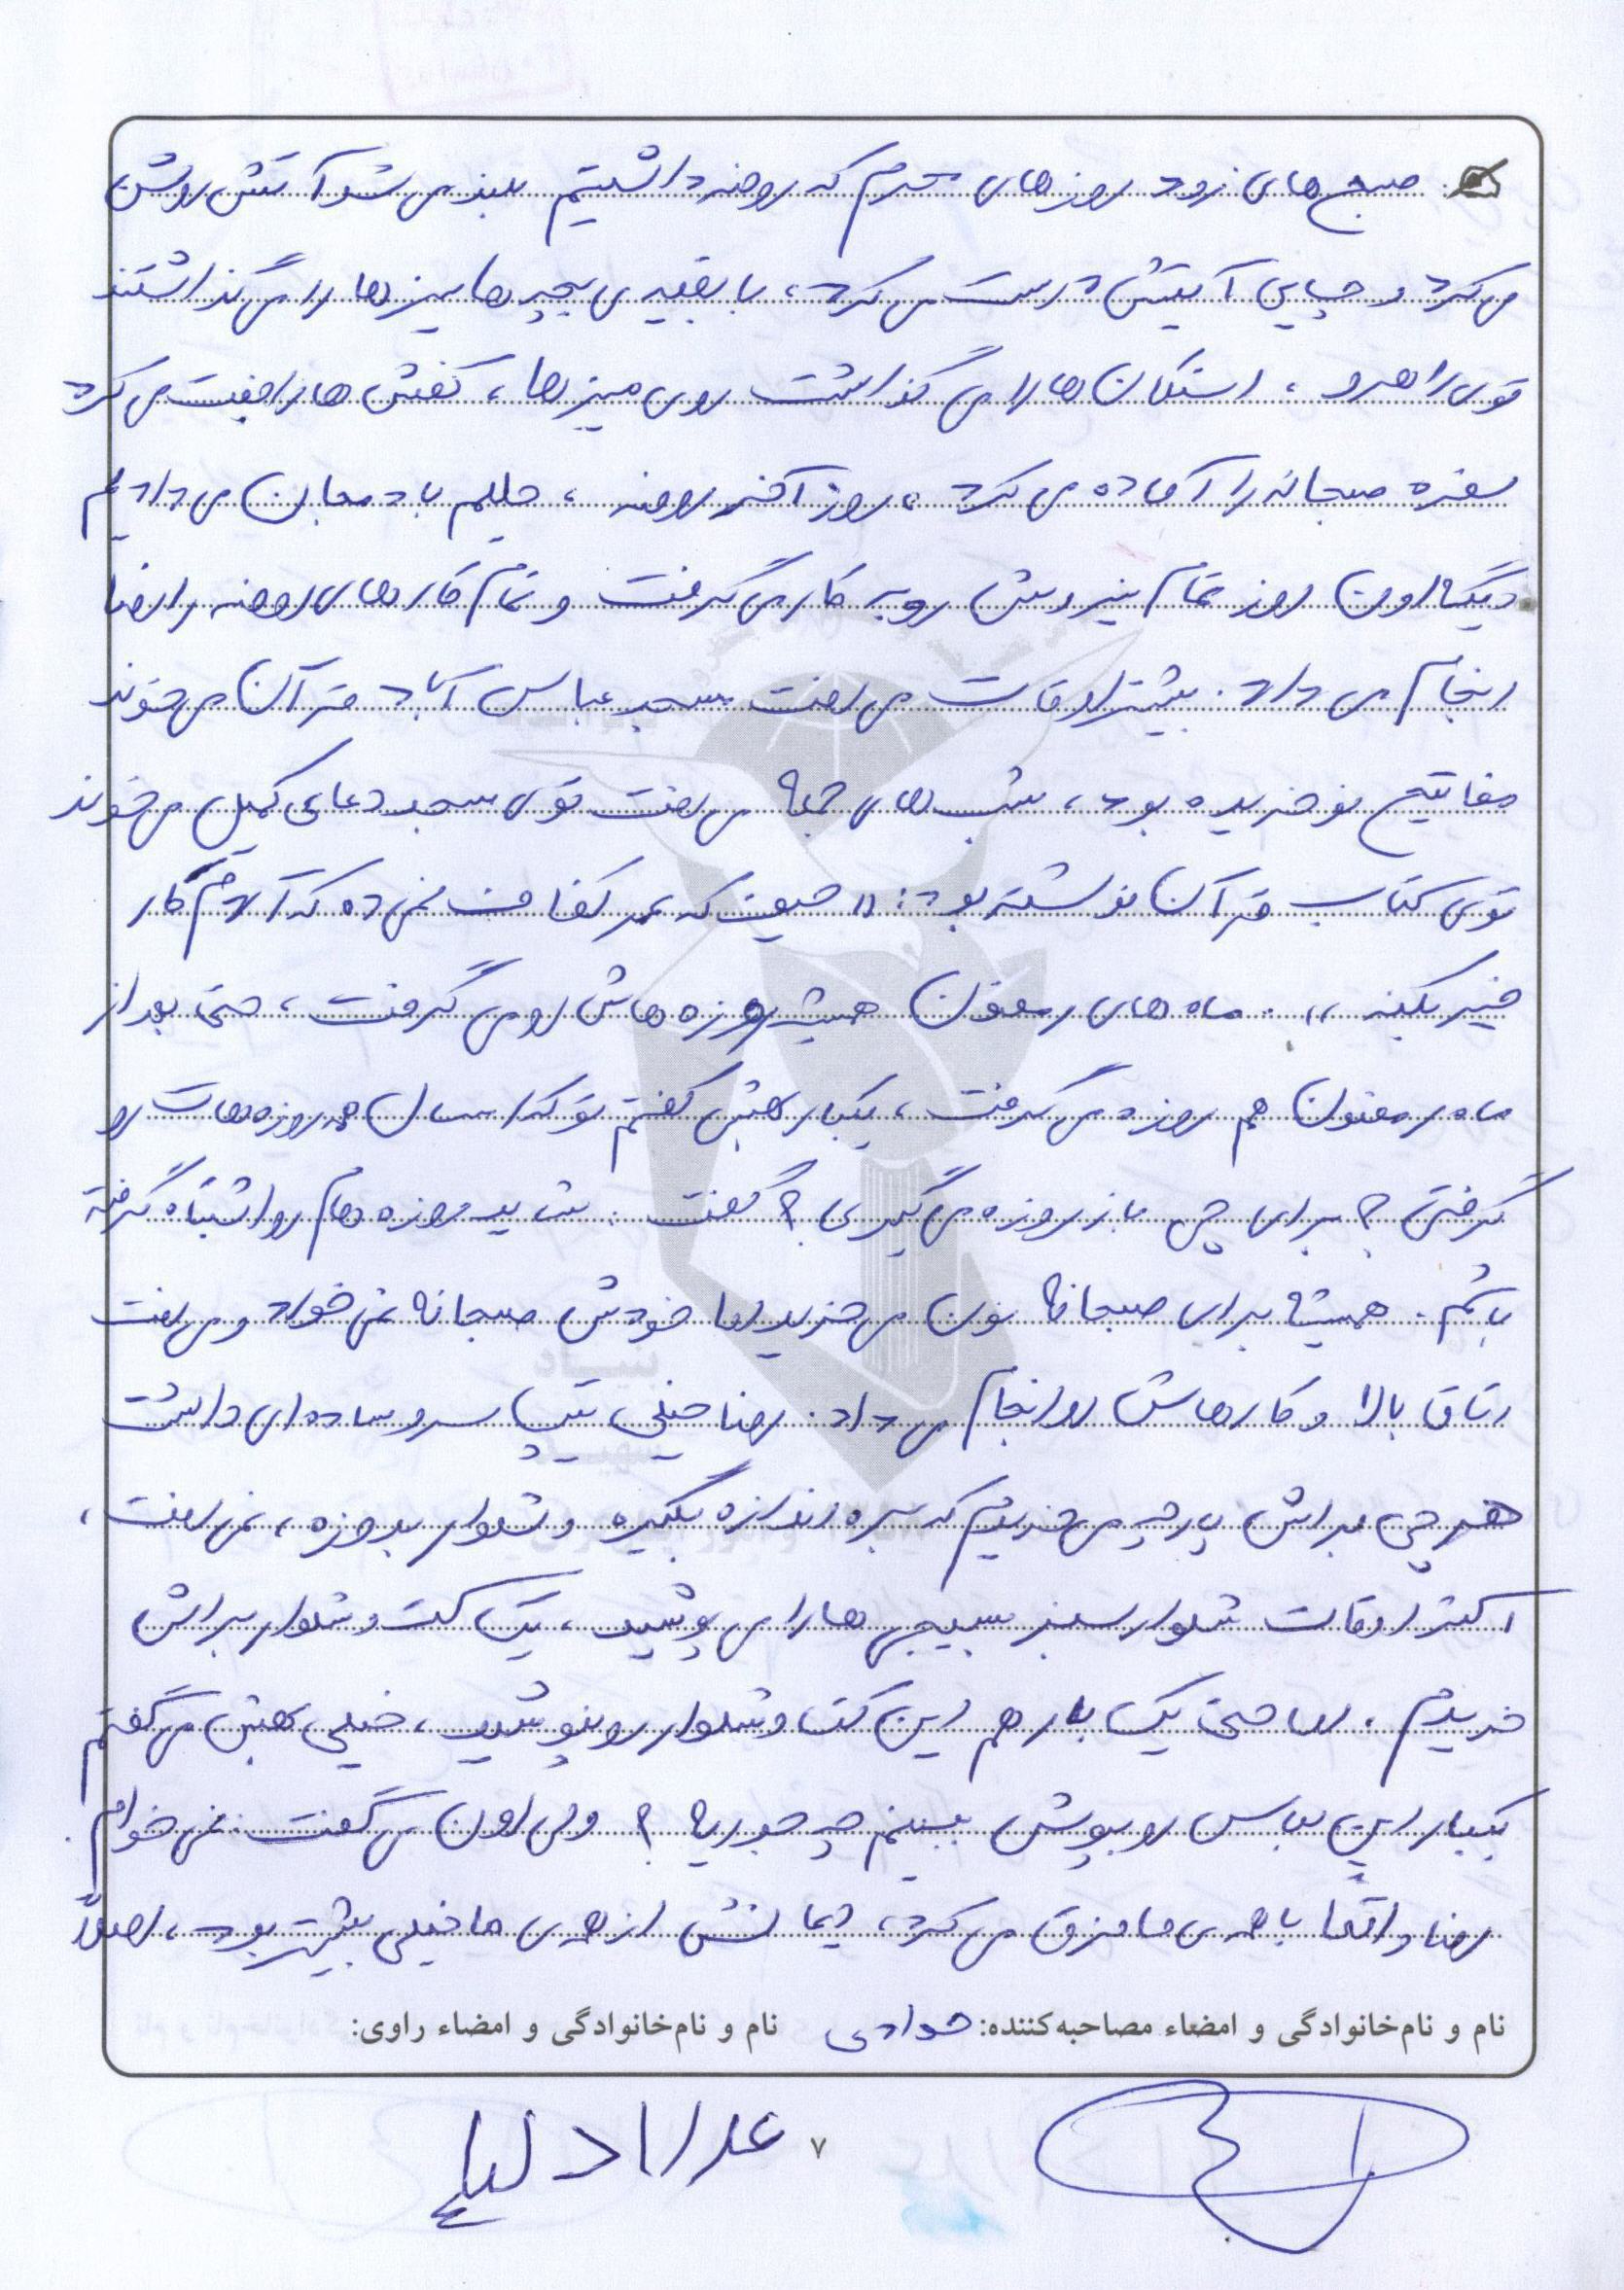 صبح‌های زود روزهای محرم که روضه داشتیم بلند می‌شد آتش روشن
می‌کرد و چایی آتیشی درست می‌کرد، با بقیه‌ی بچه‌ها میزها را می‌گذاشتند
توی راهرو، استکان‌ها را می‌گذاشت روی میزها، کفش‌ها را جفت می‌کرد
سفره صبحانه را آماده می‌کرد، روز آخر روضه، حلیم بادمجان می‌دادیم
دیگه اون روز تمام نیروش رو به کار می‌گرفت و تمام کارهای روضه را رضا
انجام می‌داد. بیشتر اوقات می‌رفت مسجد عباس آباد قرآن می‌خوند
مفاتیح نو خریده بود، شب‌های جمعه می‌رفت توی مسجد دعای کمیل می‌خوند
توی کتاب قرآن نوشته بود: «حیف که عمر کفافت نمی‌ده که آدم کار
خیر بکنه». ماه‌های رمضون همیشه روزه‌هاش رو می‌گرفت، حتی بعد از
ماه رمضون هم روزه می‌گرفت، یکبار بهش گفتم تو که امسال همه روزه‌هات رو
گرفتی؟ برای چی باز روزه می‌گیری؟ گفت: شاید روزه‌هام رو اشتباه گرفته
باشم. همیشه برای صبحانه نون می‌خرید اما خودش صبحانه نمی‌خورد و می‌رفت
اتاق بالا و کارهاش رو انجام می‌داد. رضا خیلی تیپ سر و ساده‌ای داشت
هر چی براش پارچه می‌خریدیم که بره اندازه بگیره و شلوار بدوزه، نمی‌رفت،
اکثر اوقات شلوار سبز بسیجی‌ها را می‌پوشید، یک کت و شلوار براش
خریدم. اما حتی یک بار هم این کت و شلوار رو نپوشید، خیلی بهش می‌گفتم
یکبار این لباس رو بپوش ببینم چه جوریه؟ ولی اون می‌گفت: نمی‌خوام.
رضا واقعا با همه‌ی ما فرق می‌کرد، ایمانش از همه‌ی ما خیلی بیشتر بود، اصلاً
نام و نام‌خانوادگی و امضاء مصاحبه‌کننده: جوادی نام و نام‌خانوادگی و امضاء راوی:
۷